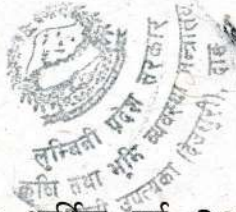 लुम्बिनी प्रदेश सरकार
कृषि तथा भूमि व्यवस्था मन्त्रालय
उपत्यका (देउखुरी), दाङ